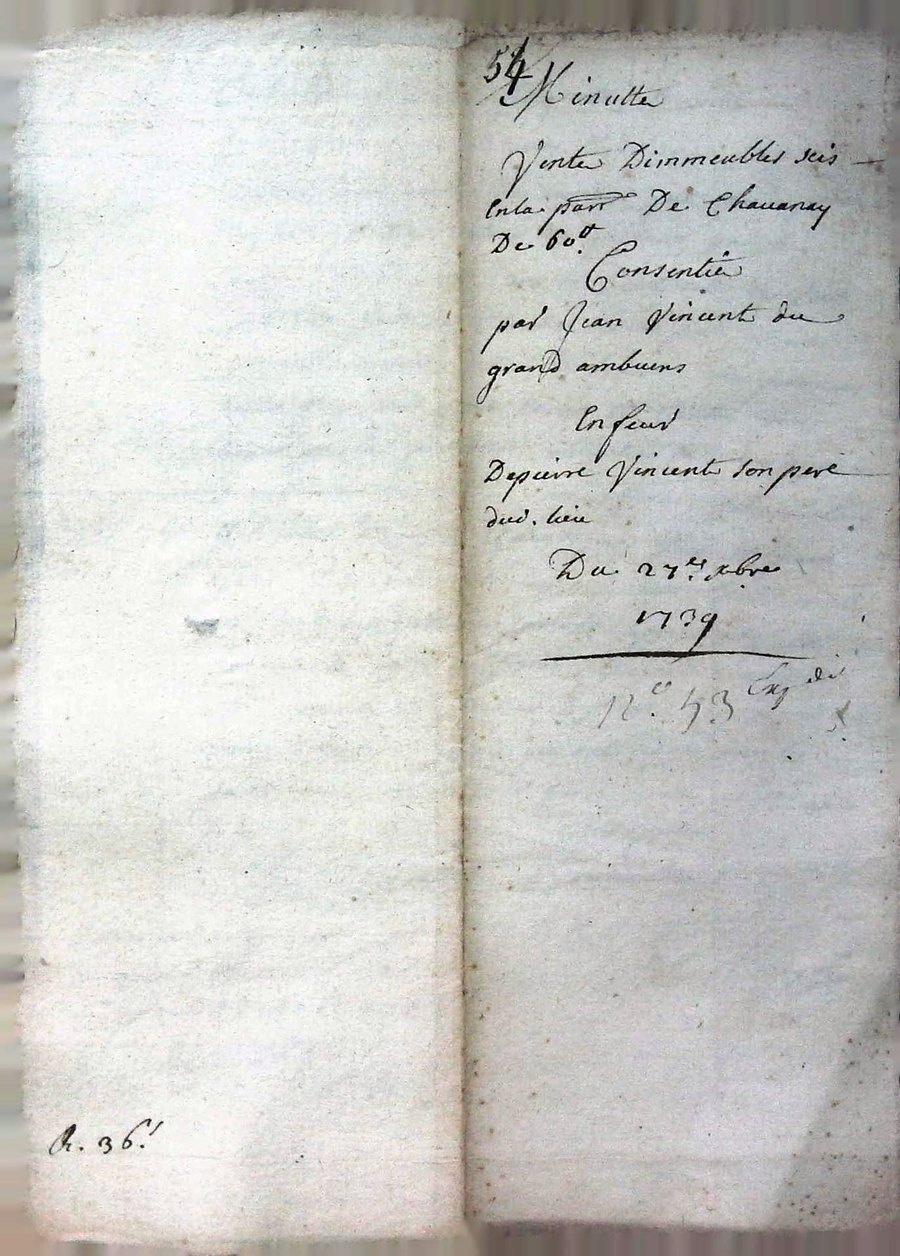 54
Minutte
Vente Dimmeubles scis
Enla parr De Chauanay
De 60tt.
Consentie
par Jean Vincent du
grand ambuens
En feur
Depierre Vincent son pere
dud. lieu
Du 27es. xbre
1739
Exp die
Nº. 53
R. 36s